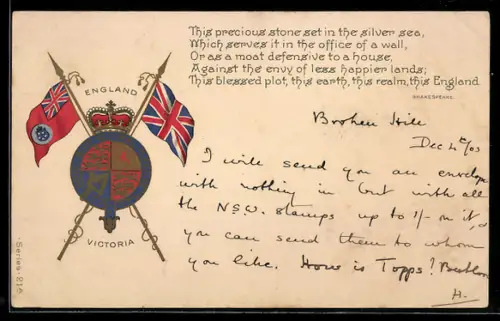 This precious stone set in the silver sea,
Which serves it in the office of a wall,
Or as a moat defensive to a house,
Against the envy of less happier lands;
This blessed plot, this earth, this realm, this England
SHAKESPEARE.
ENGLAND
VICTORIA
Series 216
Broken Hill
Dec 4th/03
I will send you an envelope
with nothing in but with all
the N.S.W. stamps up to 1/- on it,
you can send them to whom
you like. How is Topps?
H.